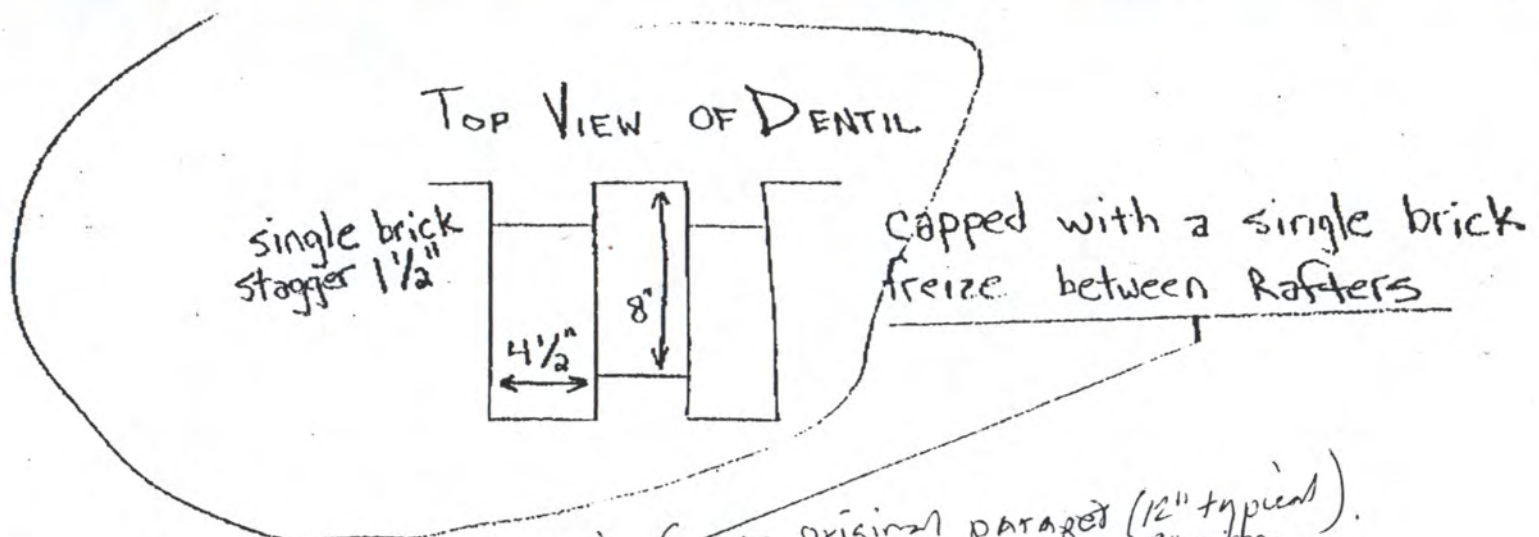 TOP VIEW OF DENTIL
single brick
stagger 1 1/2"
capped with a single brick
freize between Rafters
8"
4 1/2"
original parapet (12" typical).